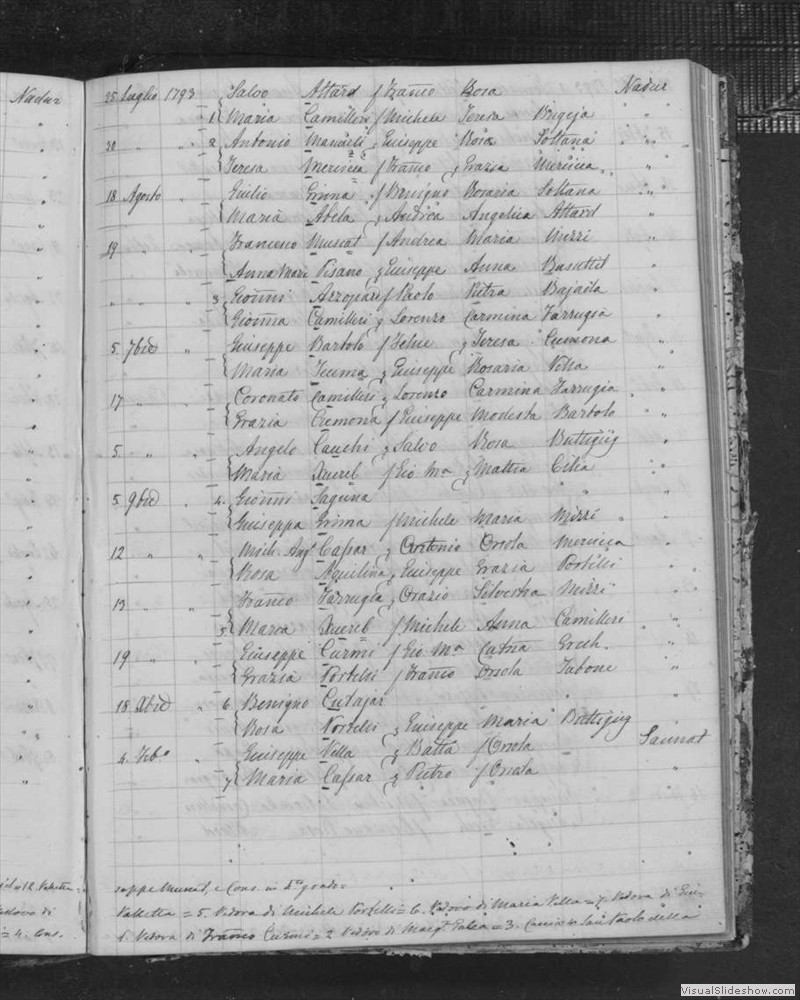 Nadur
25 Luglio 1793 Salvo Attard f Franco Rosa Nadur
1 Maria Camilleri f Michele Teresa Bugeja "
20 " " 2 Antonio q Giuseppe Rosa Soltana "
Teresa Mercieca f Franco q Grazia Mercieca "
18 Agosto " Giulio Grima f Benigno Rosaria Soltana "
Maria Abela q Andrea Angelica Attard "
19 " " Francesco Muscat f Andrea Maria Mizzi "
Anna Mari Pisano q Giuseppe Anna Busuttil "
" " " 3 Gionni Azzopardi f Paolo Pietra Bajada "
Gionna Camilleri q Lorenzo Carmina Farrugia "
5 7bre " Giuseppe Bartolo f q Teresa Cremona "
Maria Teuma q Giuseppe Rosaria Vella "
17 " " Coronato Camilleri q Lorenzo Carmina Farrugia "
Grazia Cremona f Giuseppe Modesta Bartolo "
5 " " Angelo Cauchi q Salvo Rosa Buttigiig "
Maria Xuereb f Gio Ma q Mattia Cilia "
5 9bre " 4 Gionni Saguna "
Giuseppa Grima f Michele Maria Mizzi "
12 " " Mich. Angl Cassar q Antonio Orsola Mercieca "
Rosa Aquilina q Giuseppe Grazia Portelli "
13 " " Franco Farrugia q Orazio Silvestra Mizzi "
5 Maria Xuereb f Michele Anna Camilleri "
19 " " Giuseppe Curmi f Gio Ma Catna Grech "
Grazia Portelli f Franco Orsola Tabone "
18 Xbre " 6 Benigno Cutajar "
Rosa Portelli q Giuseppe Maria Buttigiig "
4 Febo " Giuseppe Vella q Batta f Orsola Sannat
7 Maria Cassar q Pietro f Orsola "
seppe Muscat, e Cons. in 4to grado =
Valletta = 5. Vedova di Michele Portelli = 6. Vedovo di Maria Vella = 7. Vedova di Giu-
1. Vedova di Franco Curmi = 2 Vedovo di Margta = 3. San Paolo della
= 4. Cons.